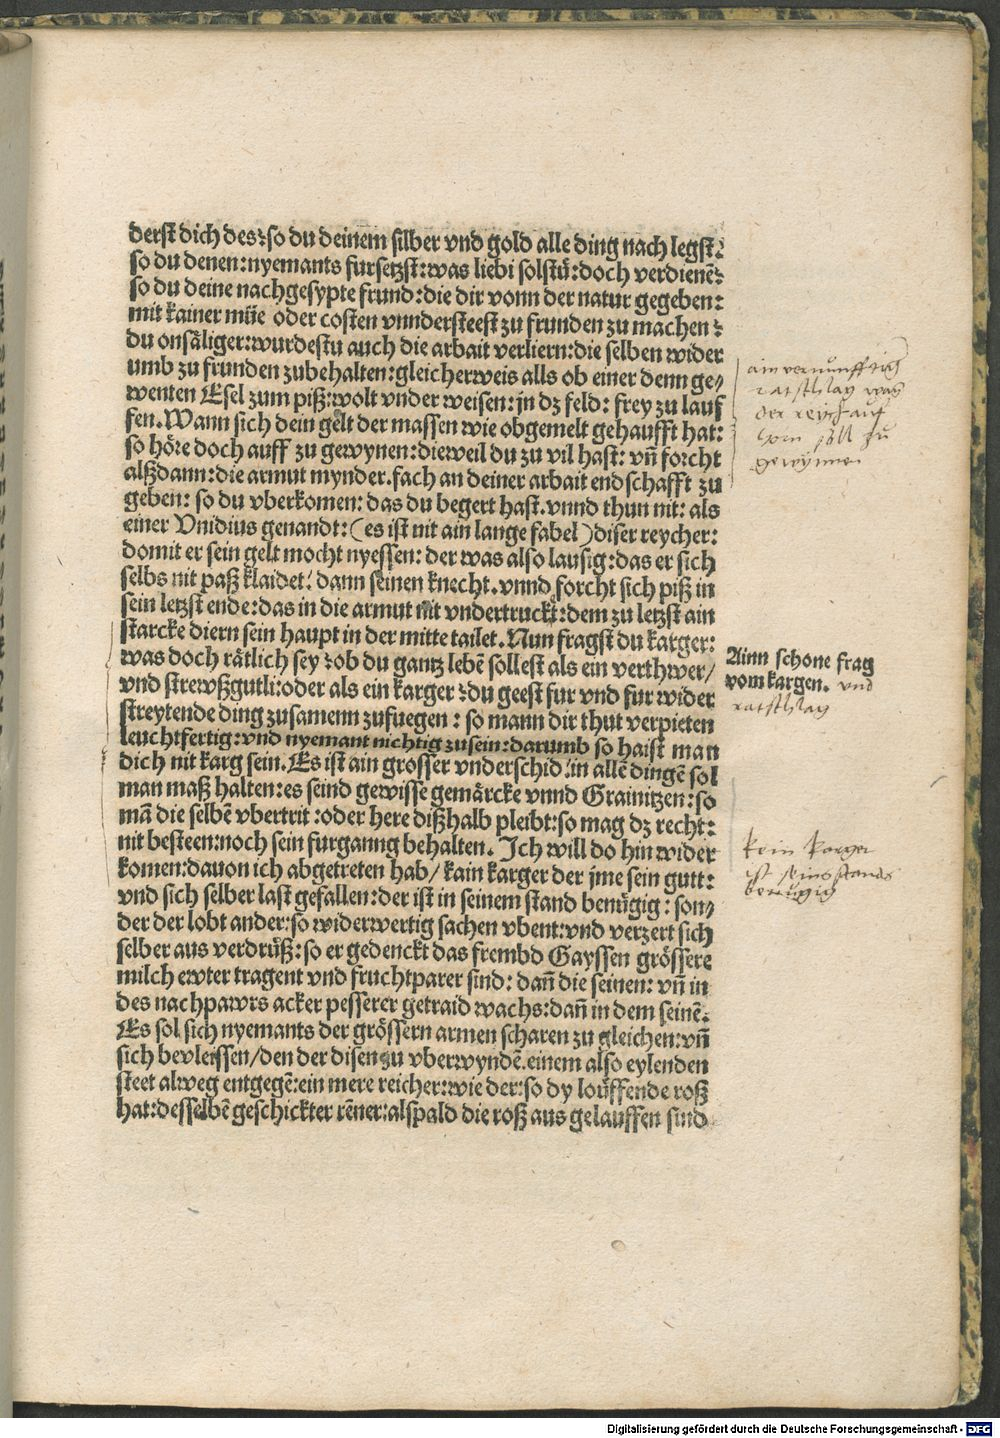 derst dich des: so du deinem silber vnd gold alle ding nach legst:
so du denen: nyemants fursetzst: was liebi solstu: doch verdienē:
so du deine nachgesypte frund: die dir vonn der natur gegeben:
mit kainer müe oder costen vnndersteest zu frunden zu machen:
du onsäliger: wurdestu auch die arbait verliern: die selben wider
umb zu frunden zubehalten: gleicherweis alls ob einer denn ge/
wenten Esel zum piß: wolt vnder weisen: jn dz feld: frey zu lauf
fen. Wann sich dein gelt der massen wie obgemelt gehaufft hat:
so höre doch auff zu gewynen: dieweil du zu vil hast: vn̄ forcht
alßdann: die armut mynder. fach an deiner arbait end schafft zu
geben: so du vberkomen: das du begert hast. vnnd thun nit: als
einer Vnidius genandt: (es ist nit ain lange fabel) diser reycher:
domit er sein gelt mocht nyessen: der was also lausig: das er sich
selbs nit paß klaidet: dann seinen knecht. vnnd forcht sich piß in
sein letzst ende: das in die armut nit vndertruckt: dem zu letzst ain
starcke diern sein haupt in der mitte tailet. Nun fragst du karger:
was doch rätlich sey: ob du gantz lebē sollest als ein verthwer/
vnd strewßgutli: oder als ein karger: du geest fur vnd fur wider
streytende ding zusamenn zufuegen: so mann dir thut verpieten
leuchtfertig: vnd nyemant nichtig zusein: darumb so haist man
dich nit karg sein. Es ist ain grosser vnderschid: in allē dingē sol
man maß halten: es seind gewisse gemärcke vnnd Grainitzen: so
mā die selbē vbertrit: oder here dißhalb pleibt: so mag dz recht:
nit besteen: noch sein furganng behalten. Ich will do hin wider
komen: dauon ich abgetreten hab/ kain karger der jme sein gutt:
vnd sich selber last gefallen: der ist in seinem stand benügig: son/
der der lobt ander: so widerwertig sachen vbent: vnd verzert sich
selber aus verdrüß: so er gedenckt das frembd Gayssen grössere
milch ewter tragent vnd fruchtparer sind: dan̄ die seinen: vn̄ in
des nachpawrs acker pesserer getraid wachs: dan̄ in dem seinē.
Es sol sich nyemants der grössern armen scharen zu gleichen: vn̄
sich bevleissen/ den der disen zu vberwyndē. einem also eylenden
steet alweg entgegē: ein mere reicher: wie der: so dy louffende roß
hat: desselbē geschickter rēner: alspald die roß aus gelauffen sind
ain vernunfftig
ratschlag wan
der reych auf
horn soll zu
gewynnen
Ainn schone frag
vom kargen. vnd
ratschlag
kein karger
ist seins stands
benugig
Digitalisierung gefördert durch die Deutsche Forschungsgemeinschaft - DFG